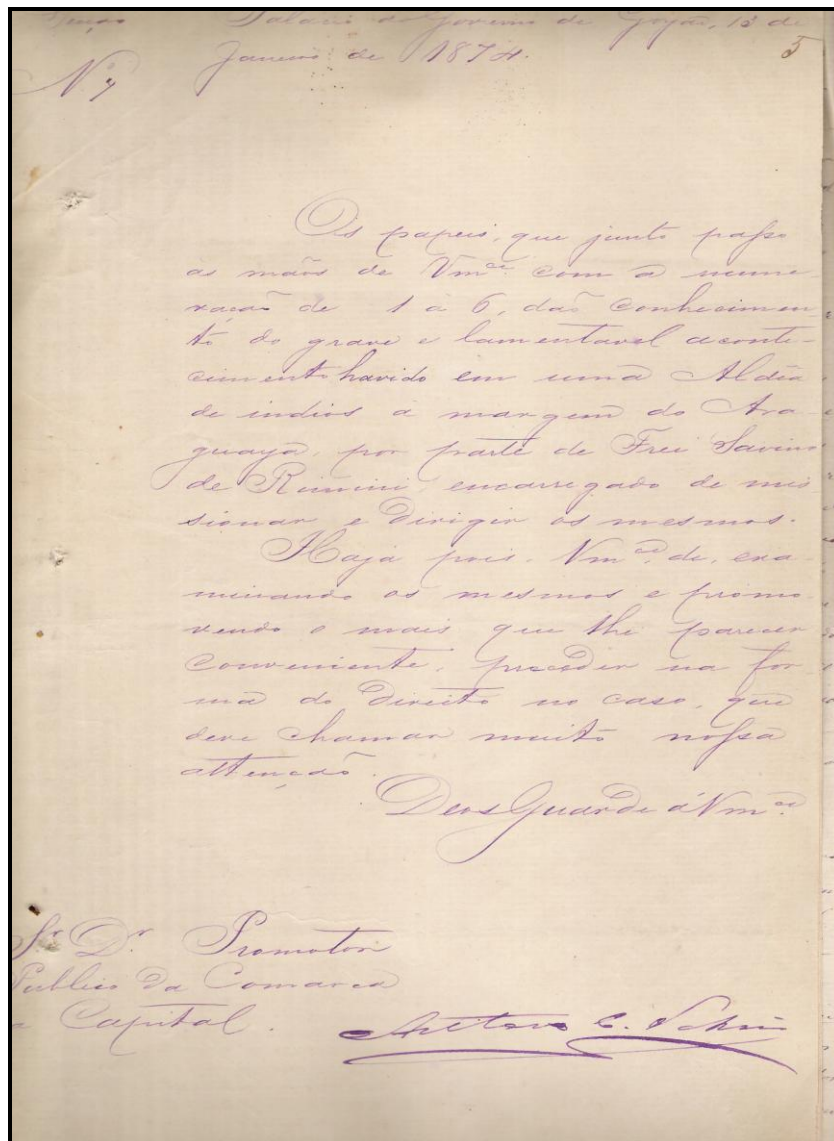 Palacio do Governo de Goyaz, 13 de
5
Janeiro de 1874.
Nº 7
Os papeis, que junto passo
as mãos de Vm.ce com a nume-
ração de 1 a 6, dão conhecimen-
to do grave e lamentavel aconte-
cimento havido em uma Aldêa
de indios á margem do Ara-
guaya, por parte de Frei Savino
de Rimini, encarregado de mis-
sionar e dirigir os mesmos.
Haja pois, Vm.ce, de, exa-
minando os mesmos e promo-
vendo o mais que lhe parecer
conveniente, proceder na for-
ma do direito no caso, que
deve chamar muito nossa
attenção.
Deos Guarde á Vm.ce
Sr. Dr. Promotor
Publico da Comarca
a Capital.